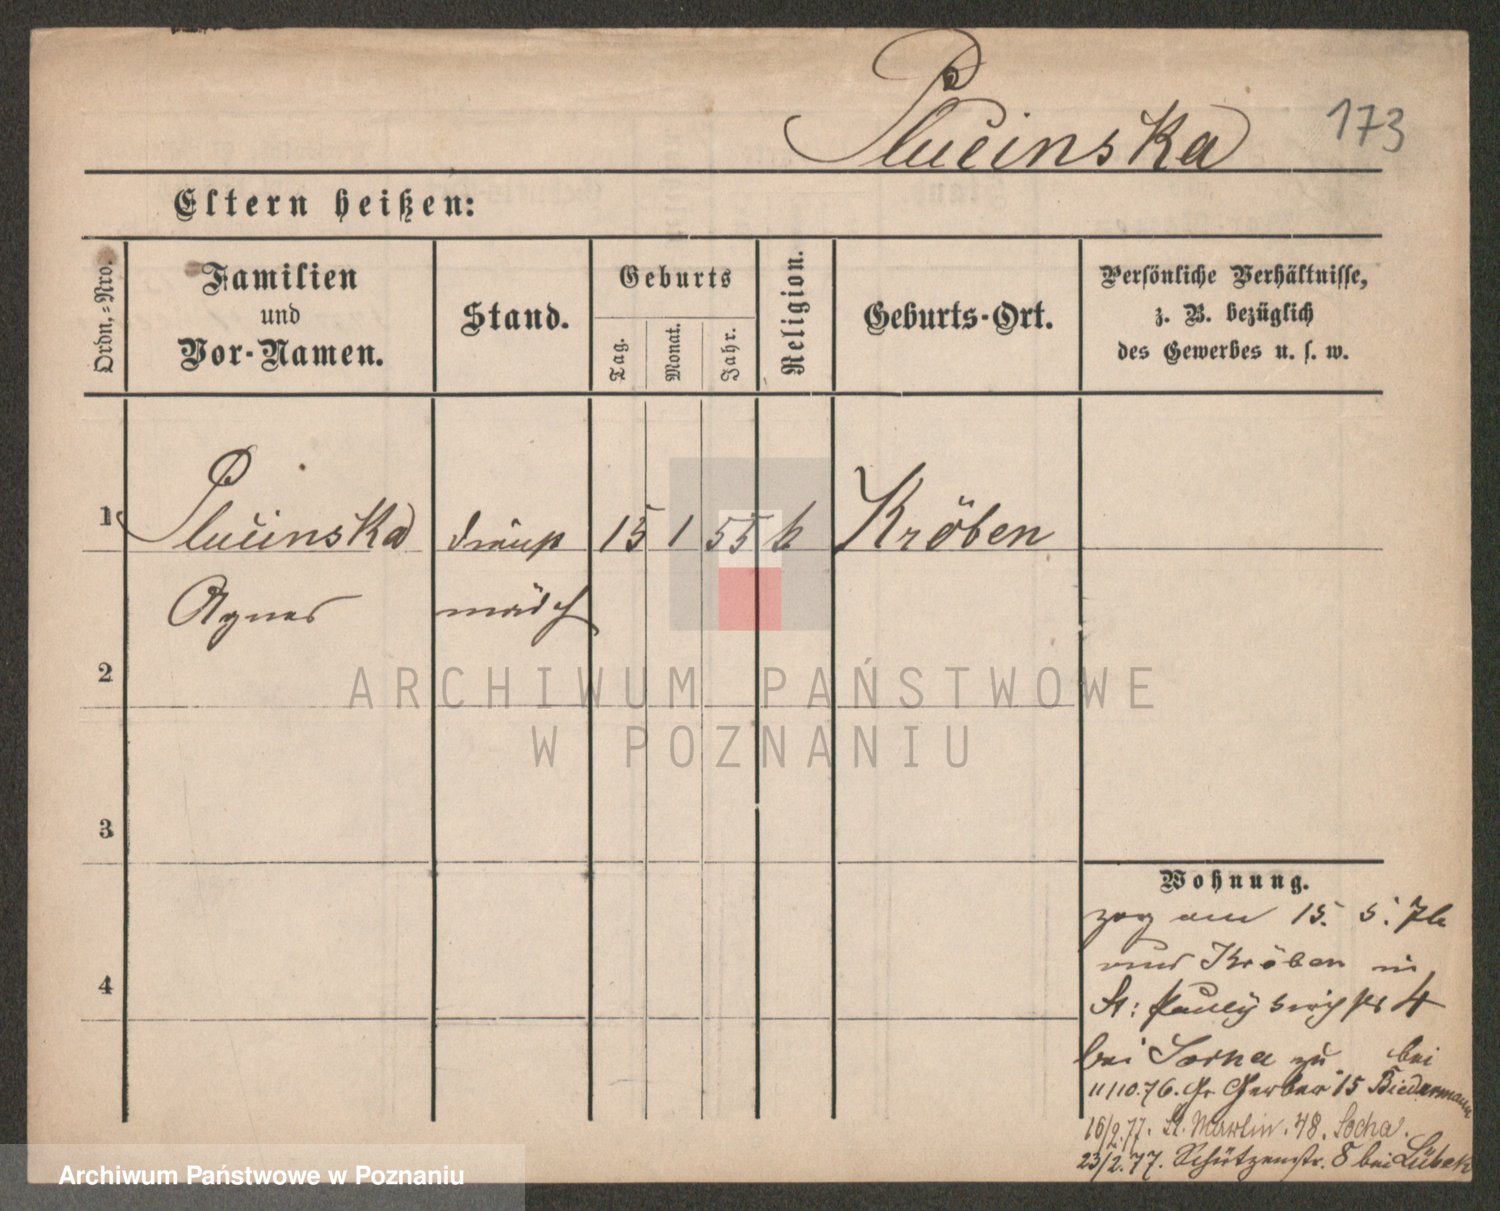 Plucinska
173
Eltern heißen:
Ordn.-Nro.
Familien
und
Vor-Namen.
Stand.
Geburts
Tag.
Monat.
Jahr.
Religion.
Geburts-Ort.
Persönliche Verhältnisse,
z. B. bezüglich
des Gewerbes u. s. w.
1
Plucinska
15 1 55 k
Kröben
Agnes
2
3
4
Wohnung.
zog am 15. 5. 76
aus Kröben in
St: 4
bei Socha zu bei
11/10.76. Gr. Gerber 15 Biedermann
16/2.77. St. Martin. 48. Socha.
23/2.77. Schützenstr. 8 bei Lübek
ARCHIWUM PAŃSTWOWE
W POZNANIU
Archiwum Państwowe w Poznaniu